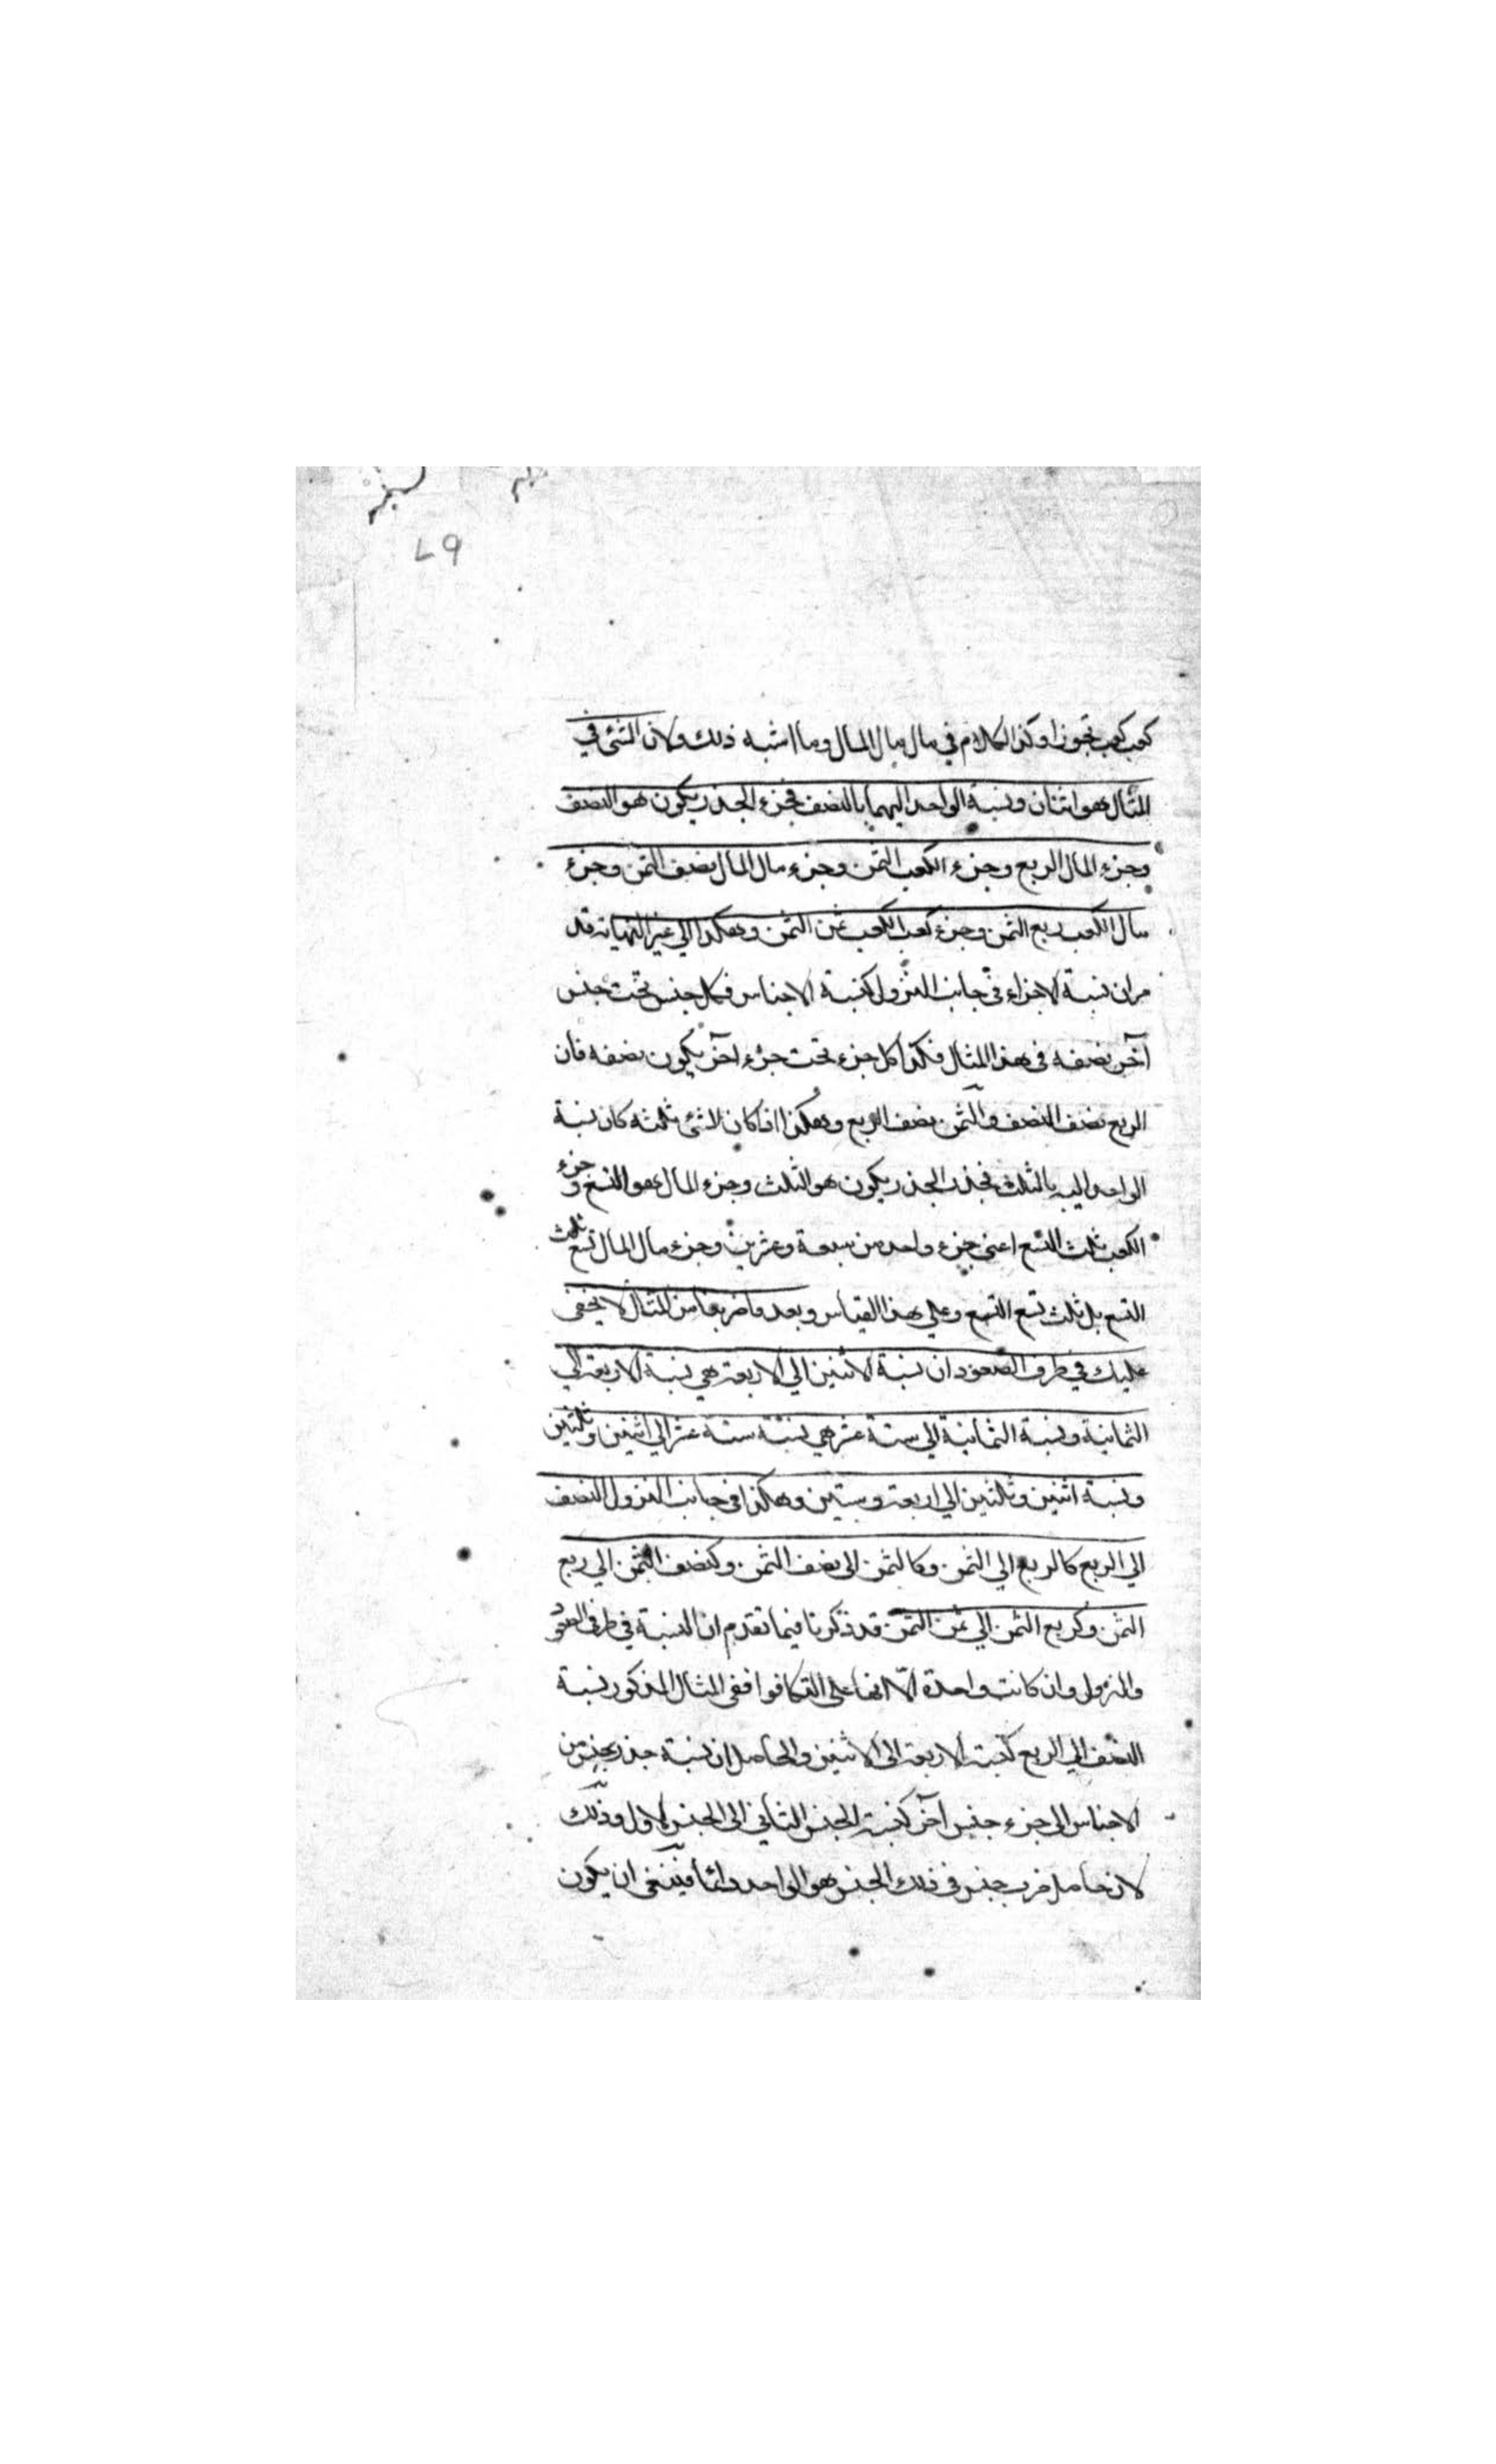 79
كعب كعب تجوزا وكذا الكلام في مال مال المال وما اشبه ذلك ولان الشئ في
المثال هو اثنان ونسبة الواحد اليهما بالنصف فجزء الجذر يكون هو النصف
وجزء المال الربع وجزء الكعب الثمن وجزء مال المال نصف الثمن وجزء
مال الكعب ربع الثمن وجزء كعب الكعب ثمن الثمن وهكذا الي غير النهاية قد
مر ان نسبة الاجزاء في جانب النزول كنسبة الاجناس فكل جنس تحت جنس
آخر نصفه في هذا المثال فكذا كل جزء تحت جزء آخر يكون نصفه فان
الربع نصف النصف والثمن نصف الربع وهكذا اذا كان لاشئ ثلثة كان نسبة
الواحد اليه بالثلث فجذر الجذر يكون هو الثلث وجزء المال هو التسع وجزء
الكعب ثلث التسع اعني جزء واحد من سبعة وعشرين وجزء مال المال تسع
التسع بل ثلث تسع التسع وعلي هذا القياس وبعد ما من المثال لا يخفي
عليك في طرف الصعود ان نسبة الاثنين الي الاربعة هي نسبة الاربعة الي
الثمانية ونسبة الثمانية الي ستة عشر هي نسبة ستة عشر الي اثنين وثلثين
ونسبة اثنين وثلثين الي اربعة وستين وهكذا في جانب النزول النصف
الي الربع كالربع الي الثمن وكالثمن الي نصف الثمن وكنصف الثمن الي ربع
الثمن وكربع الثمن الي ثمن الثمن قد ذكرنا فيما تقدم ان النسبة في طرفي الصعود
والنزول وان كانت واحدة الّا انها علي التكافوا ففي المثال المذكور نسبة
النصف الي الربع كنسبة الاربعة الي الاثنين والحاصل ان نسبة جذر جنس من
الاجناس الي جزء جنس آخر كنسبة الجنس الثاني الي الجنس الاول وذلك
لان حاصل ضرب جنس في ذلك الجنس هو الواحد دائما فينبغي ان يكون